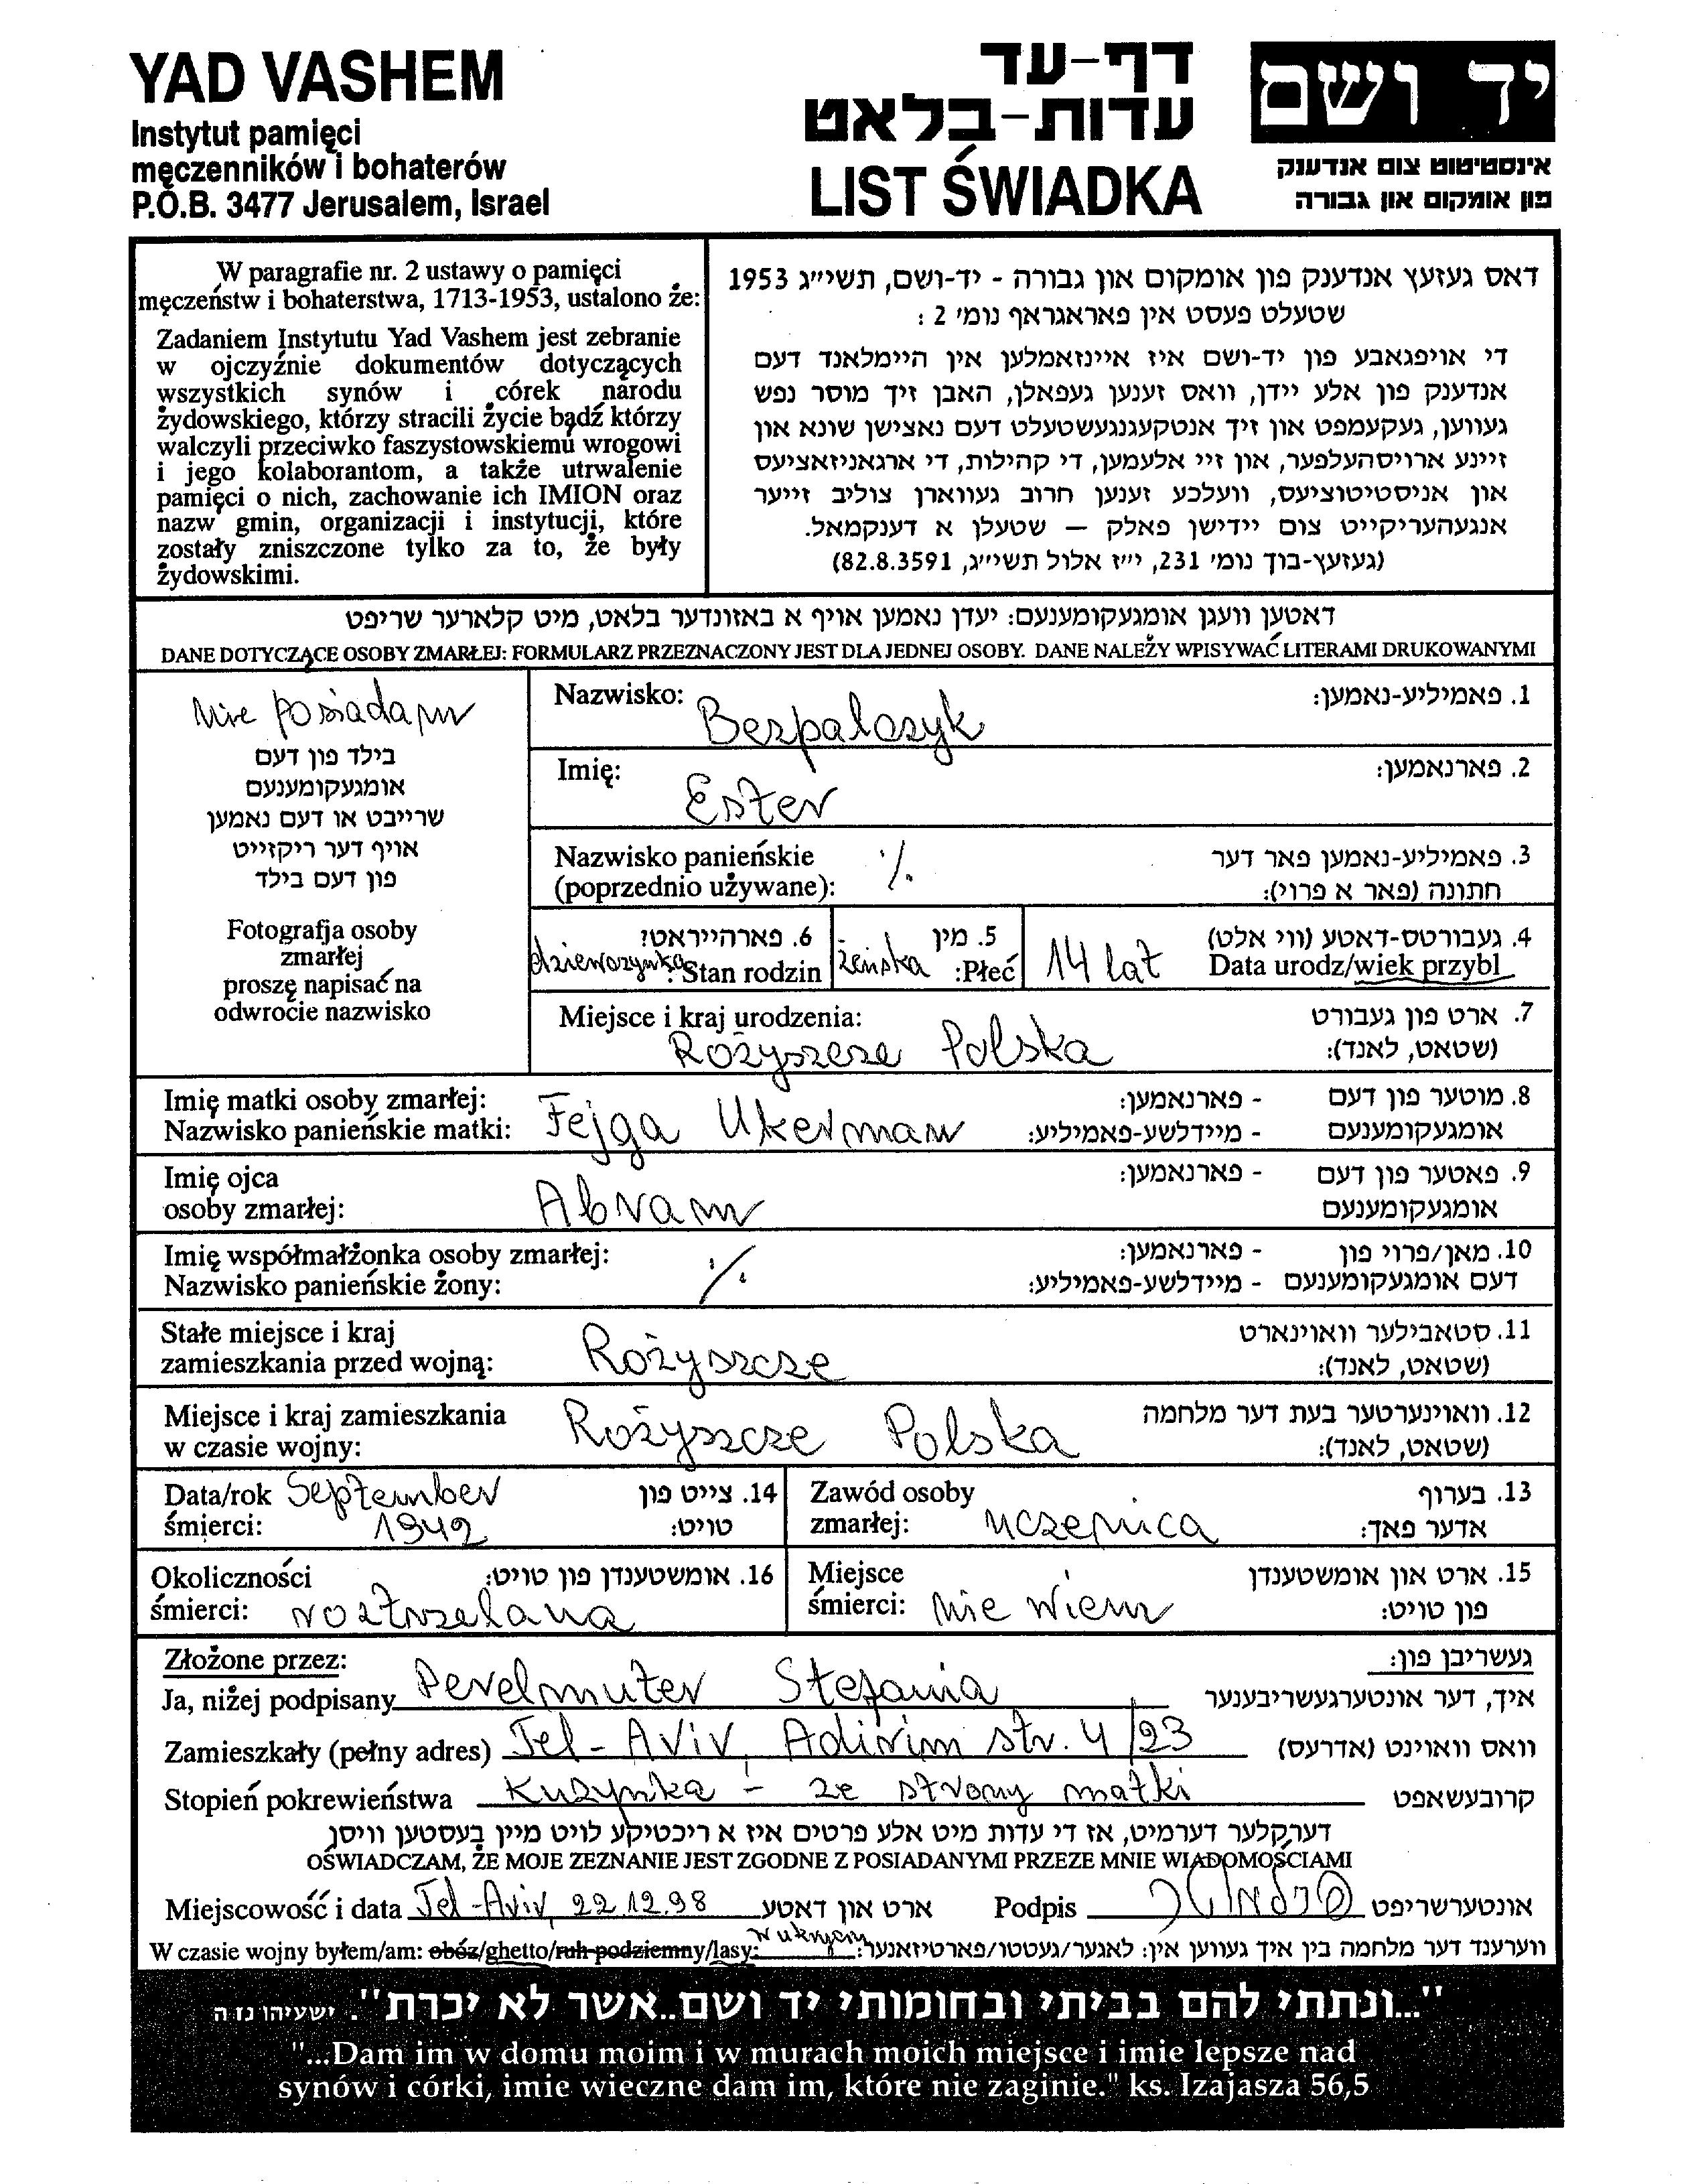 YAD VASHEM
Instytut pamięci
męczenników i bohaterów
P.O.B. 3477 Jerusalem, Israel
דף-עד
עדות-בלאט
LIST ŚWIADKA
יד ושם
אינסטיטוט צום אנדענק
פון אומקום און גבורה
W paragrafie nr. 2 ustawy o pamięci
męczeństw i bohaterstwa, 1713-1953, ustalono że:
Zadaniem Instytutu Yad Vashem jest zebranie
w ojczyźnie dokumentów dotyczących
wszystkich synów i córek narodu
żydowskiego, którzy stracili życie bądź którzy
walczyli przeciwko faszystowskiemu wrogowi
i jego kolaborantom, a także utrwalenie
pamięci o nich, zachowanie ich IMION oraz
nazw gmin, organizacji i instytucji, które
zostały zniszczone tylko za to, że były
żydowskimi.
דאס געזעץ אנדענק פון אומקום און גבורה - יד-ושם, תשי״ג 1953
שטעלט פעסט אין פאראגראף נומ׳ 2 :
די אויפגאבע פון יד-ושם איז איינזאמלען אין היימלאנד דעם
אנדענק פון אלע יידן, וואס זענען געפאלן, האבן זיך מוסר נפש
געווען, געקעמפט און זיך אנטקעגנגעשטעלט דעם נאצישן שונא און
זיינע ארויסהעלפער, און זיי אלעמען, די קהילות, די ארגאניזאציעס
און אניסטיטוציעס, וועלכע זענען חרוב געווארן צוליב זייער
אנגעהעריקייט צום יידישן פאלק — שטעלן א דענקמאל.
(געזעץ-בוך נומ׳ 231, י״ז אלול תשי״ג, 82.8.3591)
דאטען וועגן אומגעקומענעם: יעדן נאמען אויף א באזונדער בלאט, מיט קלארער שריפט
DANE DOTYCZĄCE OSOBY ZMARŁEJ: FORMULARZ PRZEZNACZONY JEST DLA JEDNEJ OSOBY. DANE NALEŻY WPISYWAĆ LITERAMI DRUKOWANYMI
Nie posiadam
בילד פון דעם
אומגעקומענעם
שרייבט או דעם נאמען
אויף דער ריקזייט
פון דעם בילד
Fotografja osoby
zmarłej
proszę napisać na
odwrocie nazwisko
Nazwisko: Bezpalczyk 1. פאמיליע-נאמען:
Imię: Ester 2. פארנאמען:
Nazwisko panieńskie ٪ 3. פאמיליע-נאמען פאר דער
(poprzednio używane): חתונה (פאר א פרוי):
6. פארהייראט? 5. מין 4. געבורטס-דאטע (ווי אלט)
dziewczynka Stan rodzin żeńska Płeć: 14 lat Data urodz/wiek przybl
Miejsce i kraj urodzenia: 7. ארט פון געבורט
Rożyszcze Polska (שטאט, לאנד):
Imię matki osoby zmarłej: - פארנאמען: 8. מוטער פון דעם
Nazwisko panieńskie matki: Fejga Ukerman - מיידלשע-פאמיליע: אומגעקומענעם
Imię ojca - פארנאמען: 9. פאטער פון דעם
osoby zmarłej: Abram אומגעקומענעם
Imię współmałżonka osoby zmarłej: ٪ - פארנאמען: 10. מאן/פרוי פון
Nazwisko panieńskie żony: - מיידלשע-פאמיליע: דעם אומגעקומענעם
Stałe miejsce i kraj 11. סטאבילער וואוינארט
zamieszkania przed wojną: Rożyszcze (שטאט, לאנד):
Miejsce i kraj zamieszkania 12. וואוינערטער בעת דער מלחמה
w czasie wojny: Rożyszcze Polska (שטאט, לאנד):
Data/rok September 14. צייט פון
śmierci: 1942 טויט:
Zawód osoby 13. בערוף
zmarłej: uczennica אדער פאך:
Okoliczności 16. אומשטענדן פון טויט:
śmierci: roztrzelana
Miejsce 15. ארט און אומשטענדן
śmierci: nie wiem פון טויט:
Złożone przez: געשריבן פון:
Ja, niżej podpisany Perelmuter Stefania איך, דער אונטערגעשריבענער
Zamieszkały (pełny adres) Tel-Aviv, Adirim str. 4/23 וואס וואוינט (אדרעס)
Stopień pokrewieństwa Kuzynka - ze strony matki קרובעשאפט
דערקלער דערמיט, אז די עדות מיט אלע פרטים איז א ריכטיקע לויט מיין בעסטען וויסן
OŚWIADCZAM, ŻE MOJE ZEZNANIE JEST ZGODNE Z POSIADANYMI PRZEZE MNIE WIADOMOŚCIAMI
Miejscowość i data Tel-Aviv, 22.12.98 ארט און דאטע Podpis אונטערשריפט
W czasie wojny byłem/am: obóz/ghetto/ruh podziemny/lasy: w ukryciu ווערענד דער מלחמה בין איך געווען אין: לאגער/געטטו/פארטיזאנער:
"...ונתתי להם בביתי ובחומותי יד ושם..אשר לא יכרת". ישעיהו נז ה
"...Dam im w domu moim i w murach moich miejsce i imie lepsze nad
synów i córki, imie wieczne dam im, które nie zaginie." ks. Izajasza 56,5